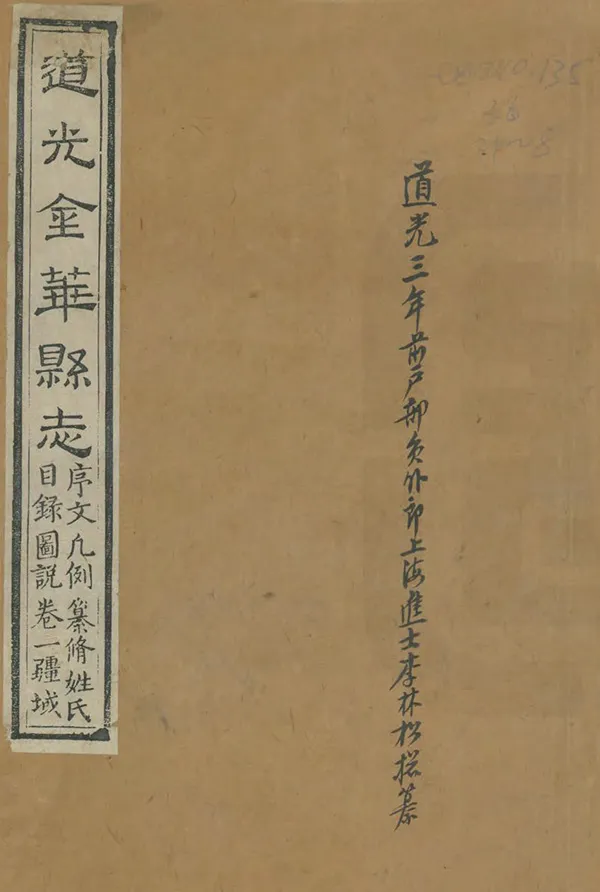 道光三年前戶部員外郎上海進士李林松総纂
道光金華縣志
序文凡例纂脩姓氏
目錄圖說卷一疆域